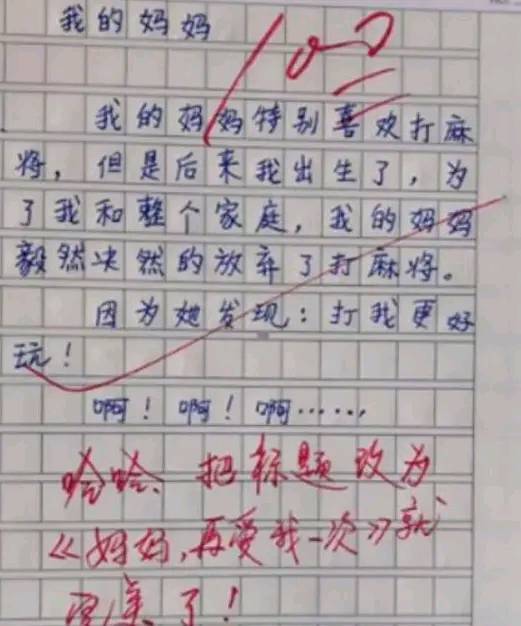 我的妈妈
100
我的妈妈特别喜欢打麻
将，但是后来我出生了，为
了我和整个家庭，我的妈妈
毅然决然的放弃了打麻将。
因为她发现：打我更好
玩！
啊！啊！啊……
哈哈、把标题改为
《妈妈，再爱我一次》就
完美了！